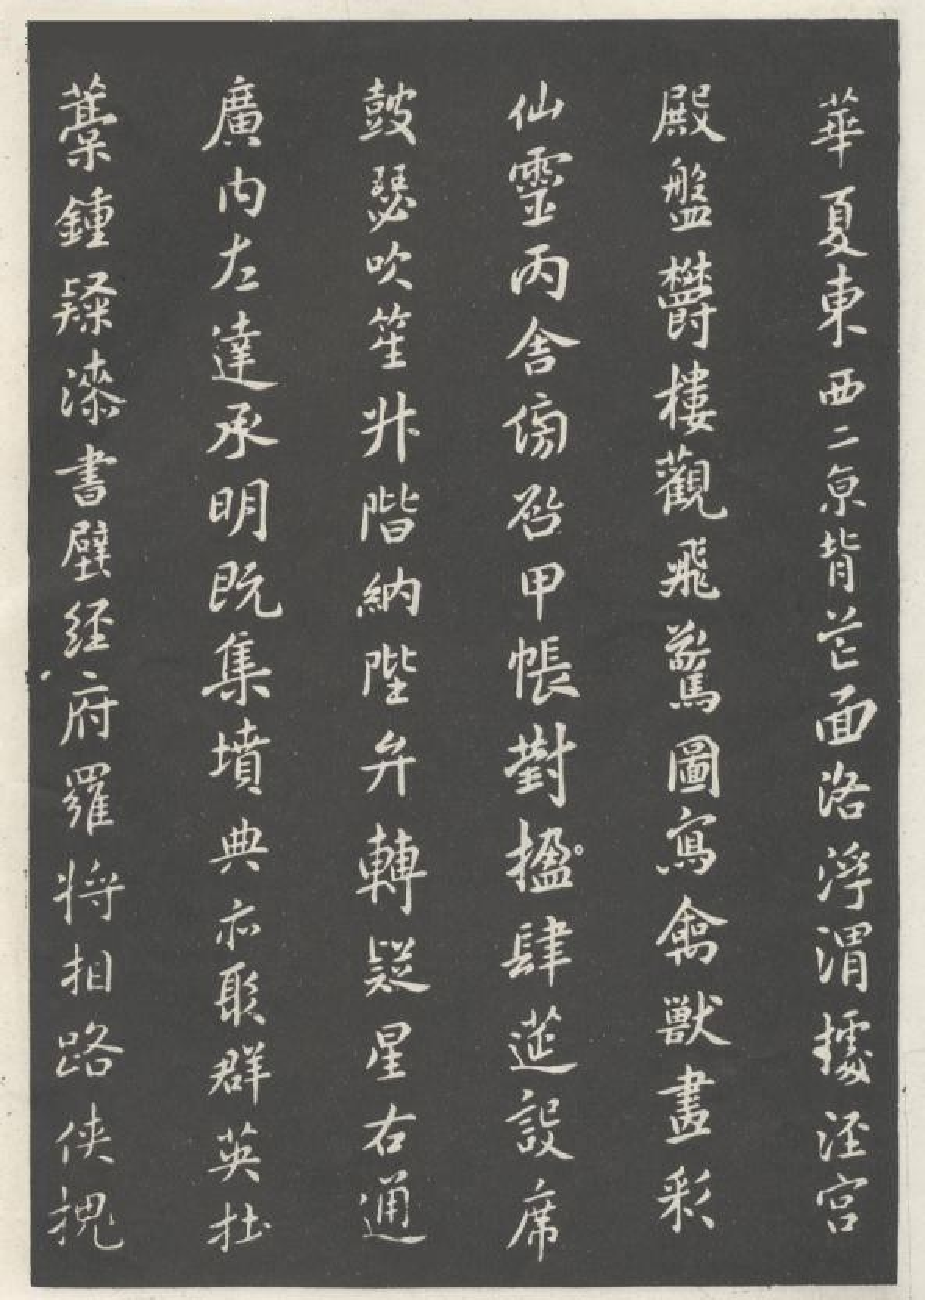 華夏東西二京背芒面洛浮渭據涇宮
殿盤欝樓觀飛驚圖寫禽獸畫彩
仙靈丙舍傍啓甲帳對楹肆莚設席
鼓瑟吹笙升階納陛弁轉疑星右通
廣內左達承明既集墳典亦聚群英杜
藁鍾隸漆書壁經府羅將相路俠槐